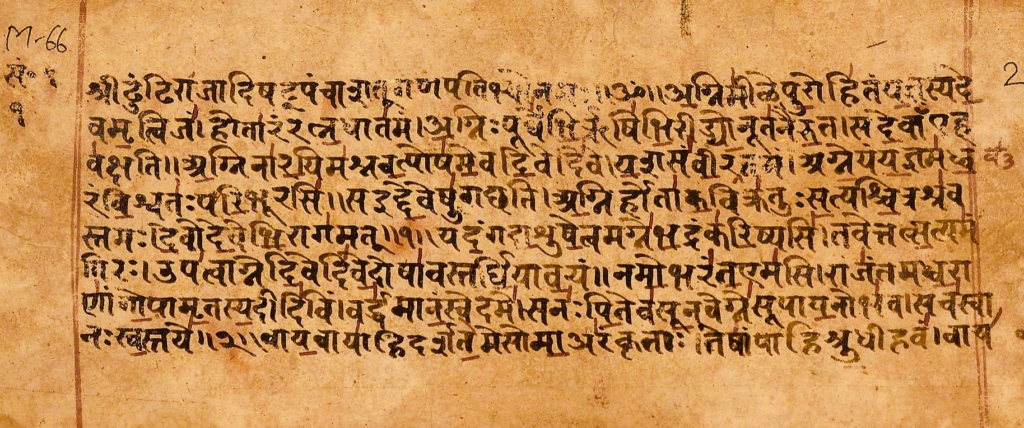 M-66
2
श्रीढुंढिराजादिषट्पंचाशत्गणपतिभ्योनमः॥ॐ॥अग्निमीळेपुरोहितंयज्ञस्यदे
वमृत्विजं।होतारंरत्नधातमं।अग्निःपूर्वेभिर्ऋषिभिरीड्योनूतनैरुत।सदेवाँएह
वक्षति॥अग्निनारयिमश्नवत्पोषमेवदिवेदिवे।यशसंवीरवत्तमं।अग्नेयंयज्ञमध्व
रंविश्वतःपरिभूरसि॥सइद्देवेषुगछति।अग्निर्होताकविक्रतुःसत्यश्चित्रश्रव
स्तमः।देवोदेवेभिरागमत्॥१॥यदंगदाशुषेत्वमग्नेभद्रंकरिष्यसि।तवेत्तत्सत्यमं
गिरः।उपत्वाग्नेदिवेदिवेदोषावस्तर्धियावयं॥नमोभरंतएमसि।राजंतमध्वरा
णांगोपामृतस्यदीदिविं।वर्द्धमानंस्वेदमे।सनःपितेवसूनवेग्नेसूपायनोभव।सचस्वा
नःस्वस्तये॥२॥वायवायाहिदर्शतेमेसोमाअरंकृताः।तेषांपाहिश्रुधीहवं।वाय